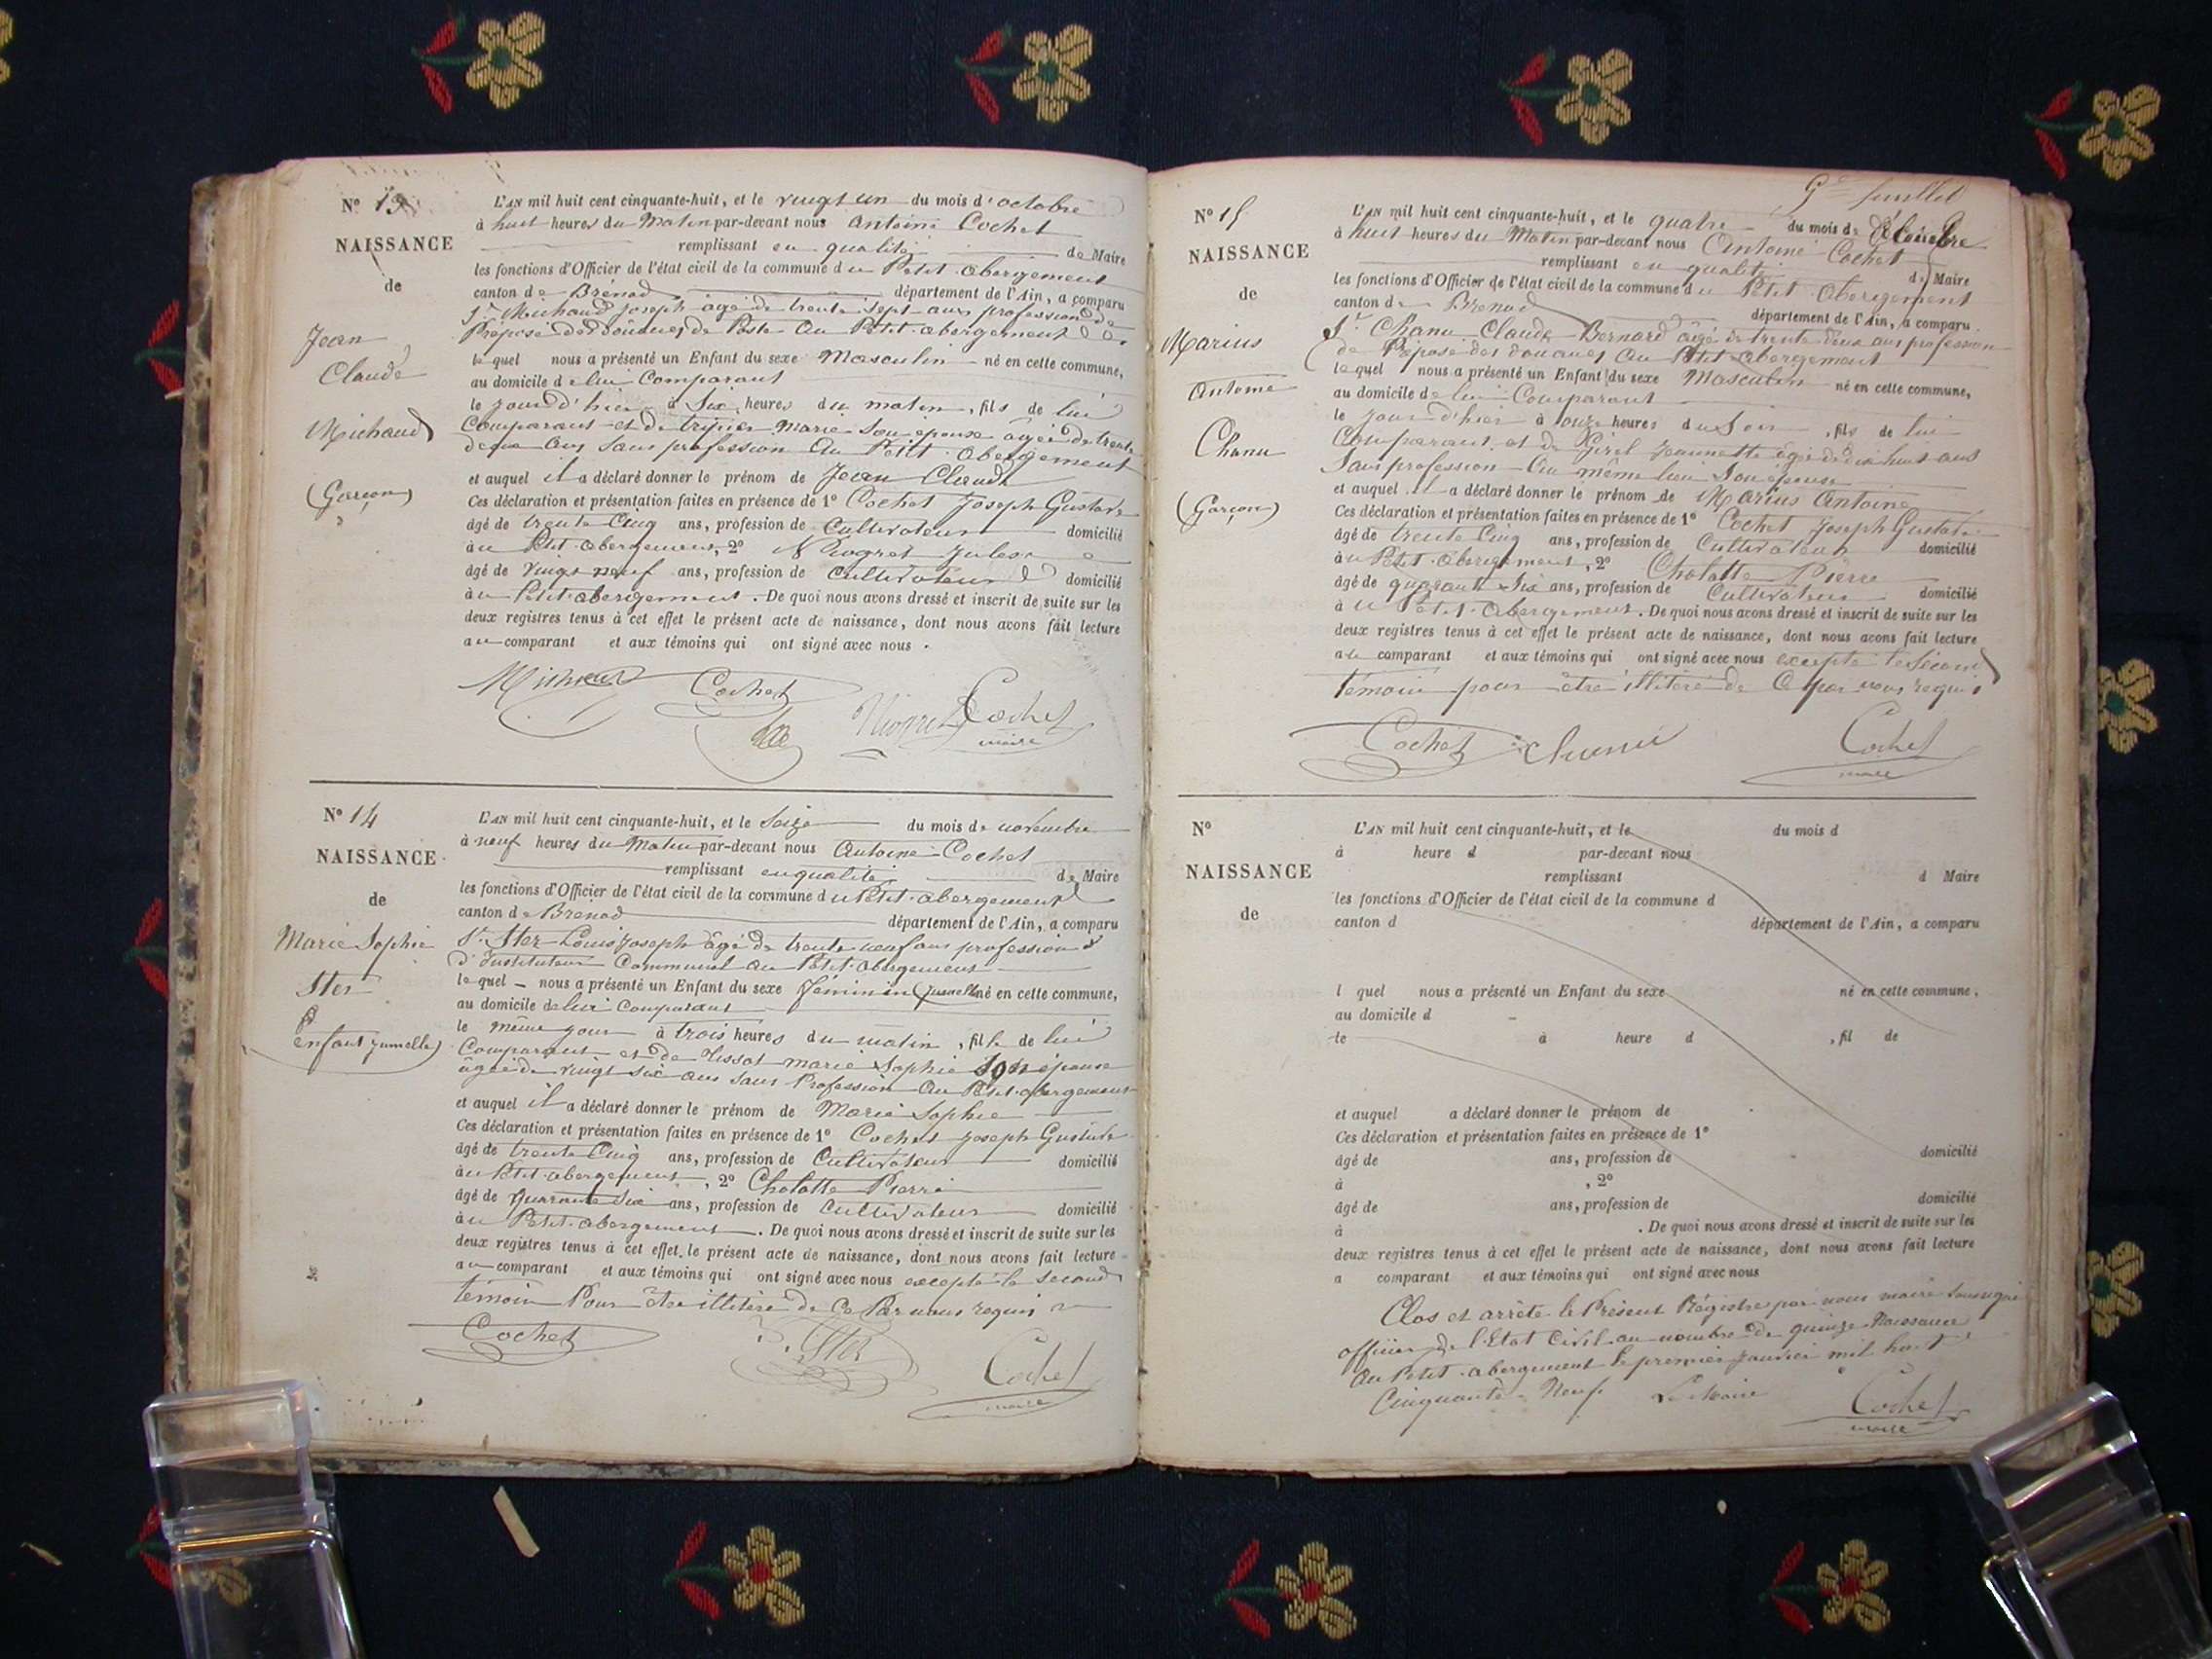 N° 13
NAISSANCE
de
Jean
Claude
Michaud
(Garçon)
L'AN mil huit cent cinquante-huit, et le vingt un du mois d'octobre
à huit heures du Matin par-devant nous Antoine Cochet
remplissant en qualité de Maire
les fonctions d'Officier de l'état civil de la commune du Petit-abergement
canton de Brénod département de l'Ain, a comparu
Sr Michaud Joseph âgé de trente sept ans profession de
Préposé des douanes de Poste au Petit-abergement
lequel nous a présenté un Enfant du sexe Masculin né en cette commune,
au domicile de lui Comparant
le jour d'hier à Six heures du matin, fils de lui
Comparant et de Marie Son épouse âgée de trente
deux ans sans profession Au Petit-abergement
et auquel il a déclaré donner le prénom de Jean Claude
Ces déclaration et présentation faites en présence de 1° Cochet Joseph Gustave
âgé de trente Cinq ans, profession de Cultivateur domicilié
au Petit-abergement, 2° Jules
âgé de vingt neuf ans, profession de Cultivateur domicilié
au Petit-abergement. De quoi nous avons dressé et inscrit de suite sur les
deux registres tenus à cet effet le présent acte de naissance, dont nous avons fait lecture
au comparant et aux témoins qui ont signé avec nous.
Michaud Cochet Cochet
maire
N° 14
NAISSANCE
de
Marie Sophie
Ster
enfant jumelle)
L'AN mil huit cent cinquante-huit, et le Seize du mois de novembre
à neuf heures du Matin par-devant nous Antoine Cochet
remplissant en qualité de Maire
les fonctions d'Officier de l'état civil de la commune du Petit-abergement
canton de Brénod département de l'Ain, a comparu
Sr Ster Louis Joseph âgé de trente neuf ans profession
d'Instituteur Communal au Petit-abergement
lequel nous a présenté un Enfant du sexe féminin (jumelle) né en cette commune,
au domicile de lui Comparant
le même jour à trois heures du matin, fille de lui
Comparant et de Tissot marie Sophie Son épouse
âgée de vingt six ans sans Profession Au Petit-abergement
et auquel il a déclaré donner le prénom de Marie Sophie
Ces déclaration et présentation faites en présence de 1° Cochet Joseph Gustave
âgé de trente Cinq ans, profession de Cultivateur domicilié
au Petit-abergement, 2° Cholatte Pierre
âgé de quarante Six ans, profession de Cultivateur domicilié
au Petit-abergement. De quoi nous avons dressé et inscrit de suite sur les
deux registres tenus à cet effet le présent acte de naissance, dont nous avons fait lecture
au comparant et aux témoins qui ont signé avec nous excepté le second
témoin Pour être illitéré de Ce Par nous requis
Cochet Ster Cochet
maire
9e feuillet
N° 15
NAISSANCE
de
Marius
Antoine
Chanu
(Garçon)
L'AN mil huit cent cinquante-huit, et le quatre du mois de décembre
à huit heures du Matin par-devant nous Antoine Cochet
remplissant en qualité de Maire
les fonctions d'Officier de l'état civil de la commune du Petit-abergement
canton de Brénod département de l'Ain, a comparu
Sr Chanu Claude Bernard âgé de trente deux ans profession
de Préposé des douanes au Petit-abergement
lequel nous a présenté un Enfant du sexe Masculin né en cette commune,
au domicile de lui Comparant
le jour d'hier à onze heures du Soir, fils de lui
Comparant et de Jeannette âgée de dix huit ans
Sans profession Au même lieu Son épouse
et auquel il a déclaré donner le prénom de Marius Antoine
Ces déclaration et présentation faites en présence de 1° Cochet Joseph Gustave
âgé de trente Cinq ans, profession de Cultivateur domicilié
au Petit-abergement, 2° Cholatte Pierre
âgé de quarante Six ans, profession de Cultivateur domicilié
au Petit-abergement. De quoi nous avons dressé et inscrit de suite sur les
deux registres tenus à cet effet le présent acte de naissance, dont nous avons fait lecture
au comparant et aux témoins qui ont signé avec nous excepté le Second
témoin pour être illitéré de Ce par nous requis
Cochet Chanu Cochet
maire
N°
NAISSANCE
de
L'AN mil huit cent cinquante-huit, et le du mois d
à heure d par-devant nous
remplissant d Maire
les fonctions d'Officier de l'état civil de la commune d
canton d département de l'Ain, a comparu
l quel nous a présenté un Enfant du sexe né en cette commune,
au domicile d
le à heure d , fil de
et auquel a déclaré donner le prénom de
Ces déclaration et présentation faites en présence de 1°
âgé de ans, profession de domicilié
à , 2°
âgé de ans, profession de domicilié
à . De quoi nous avons dressé et inscrit de suite sur les
deux registres tenus à cet effet le présent acte de naissance, dont nous avons fait lecture
a comparant et aux témoins qui ont signé avec nous
Clos et arrêté le Présent Régistre par nous maire Soussigné
officier de l'Etat Civil au nombre de quinze Naissance
Au Petit-abergement le premier Janvier mil huit
Cinquante-Neuf Le Maire Cochet
maire